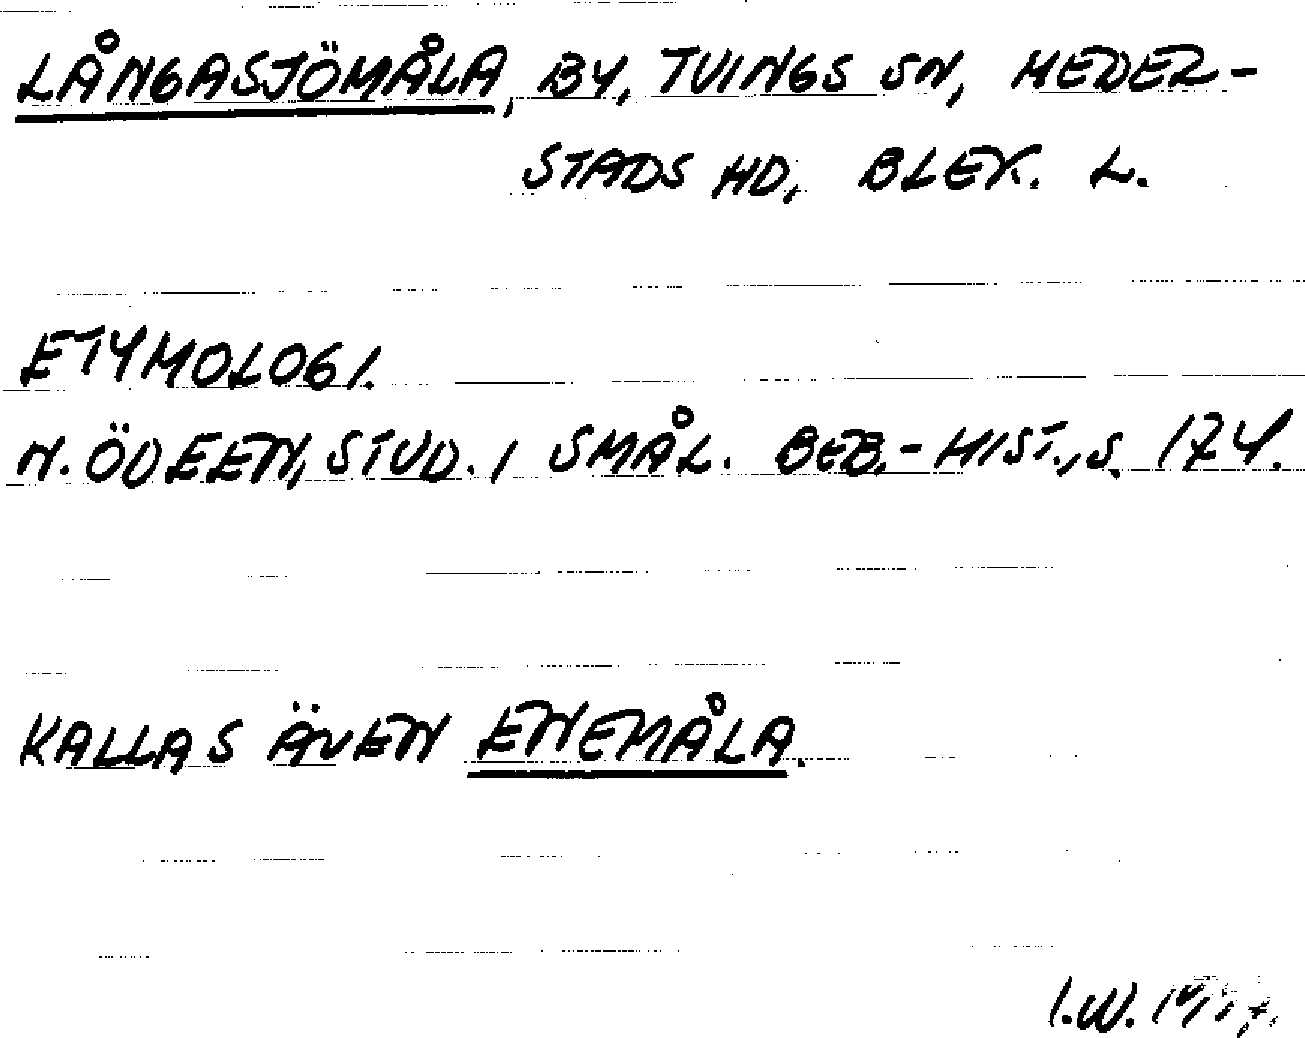 LÅNGASJÖMÅLA, BY, TVINGS SN, MEDEL-
STADS HD, BLEK. L.
ETYMOLOGI.
N. ÖDEEN, STUD. I SMÅL. BEB.-HIST., S. 174.
KALLAS ÄVEN ENEMÅLA.
I.W.